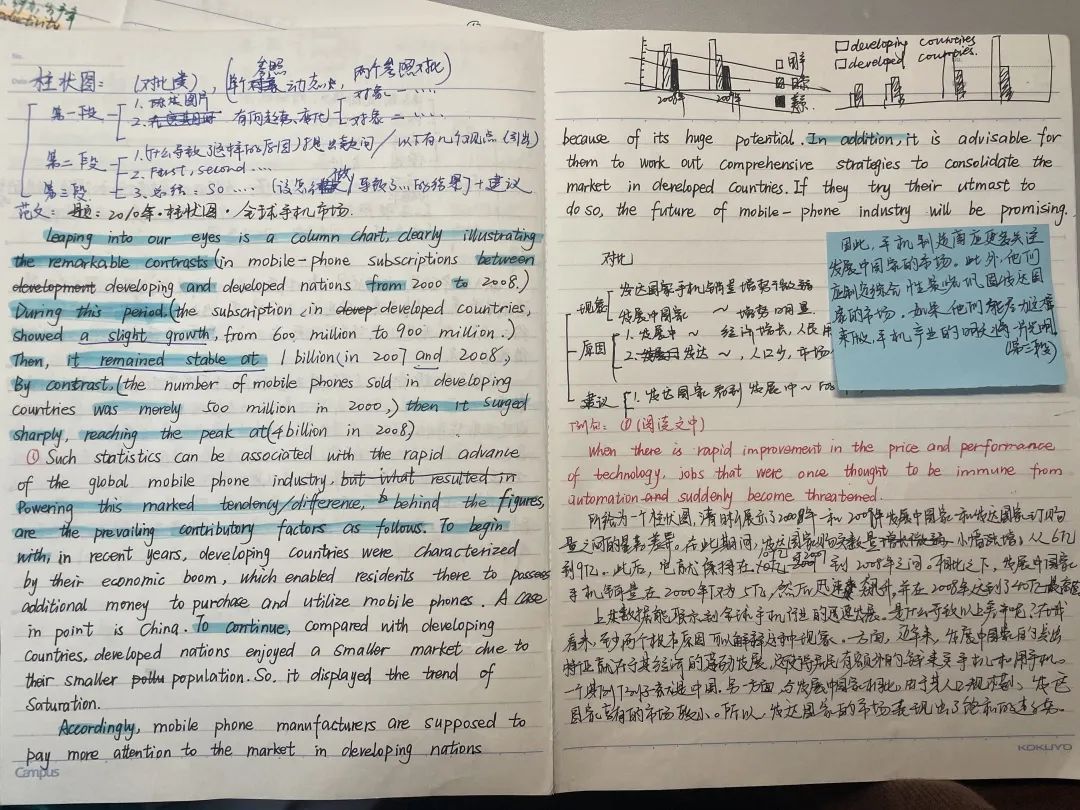 柱状图：
第一段
1. 描述图片
2. 有何趋势、变化
对象一……
对象二……
第二段
1.(什么导致了这样的原因)提出疑问/以下有几个观点(引出)
2. First, second ….
第三段
3. 总结. So ….
+建议
范文: 2010年·柱状图·全球手机市场.
Leaping into our eyes is a column chart, clearly illustrating
the remarkable contrasts (in mobile-phone subscriptions between
development developing and developed nations from 2000 to 2008.)
During this period, (the subscription in develop developed countries,
showed a slight growth, from 600 million to 900 million.)
Then, it remained stable at 1 billion (in 2007 and 2008,
By contrast, (the number of mobile phones sold in developing
countries was merely 500 million in 2000,) then it surged
sharply, reaching the peak at (4 billion in 2008)
① Such statistics can be associated with the rapid advance
of the global mobile phone industry, but what resulted in
Powering this marked tendency/difference, behind the figures,
are the prevailing contributory factors as follows. To begin
with, in recent years, developing countries were characterized
by their economic boom, which enabled residents there to possess
additional money to purchase and utilize mobile phones. A case
in point is China. To continue, compared with developing
countries, developed nations enjoyed a smaller market due to
their smaller population. So, it displayed the trend of
Saturation.
Accordingly, mobile phone manufacturers are supposed to
pay more attention to the market in developing nations
Campus
2008年
developing countries
developed countries.
because of its huge potential. In addition, it is advisable for
them to work out comprehensive strategies to consolidate the
market in developed countries. If they try their utmost to
do so, the future of mobile-phone industry will be promising.
对比
现象
发达国家手机销量增势
发展中国家 ~ 增势明显
原因
1. 发展中 ~ 经济增长, 人民
2. 发达 ~, 人口少, 市场
建议
1. 发达国家
因此, 手机制造商应更多关注
发展中国家的市场。此外, 他们
应制定综合性策略巩固发达国
家的市场。如果他们能尽力这样
来做, 手机产业的明天将一片光明
(第三段)
例句: ①(阅读文中)
When there is rapid improvement in the price and performance
of technology, jobs that were once thought to be immune from
automation and suddenly become threatened.
所绘为一个柱状图, 清晰展示了2000年和2008年发展中国家和发达国家订购
量之间的显著差异。在此期间, 发达国家 小幅激增, 从6亿
到9亿。此后, 它就保持在10亿 到2008年之间。相比之下, 发展中国家
手机销量在2000年仅为5亿, 然后迅速飙升, 并在2008年达到了40亿最高值
上述数据能联系到全球手机行业的迅速发展。是什么导致以上
看来, 至少两个根本原因可以解释这种现象。一方面, 近年来, 发展中国家的突出
特征就在于其经济的蓬勃发展, 这使得居民有额外的钱来买手机和用手机。
一个典型的例子就是中国. 另一方面, 与发展中国家相比, 由于其人口规模小, 发达
国家享有的市场较小。所以, 发达国家的市场表现出了饱和的
KOKUYO